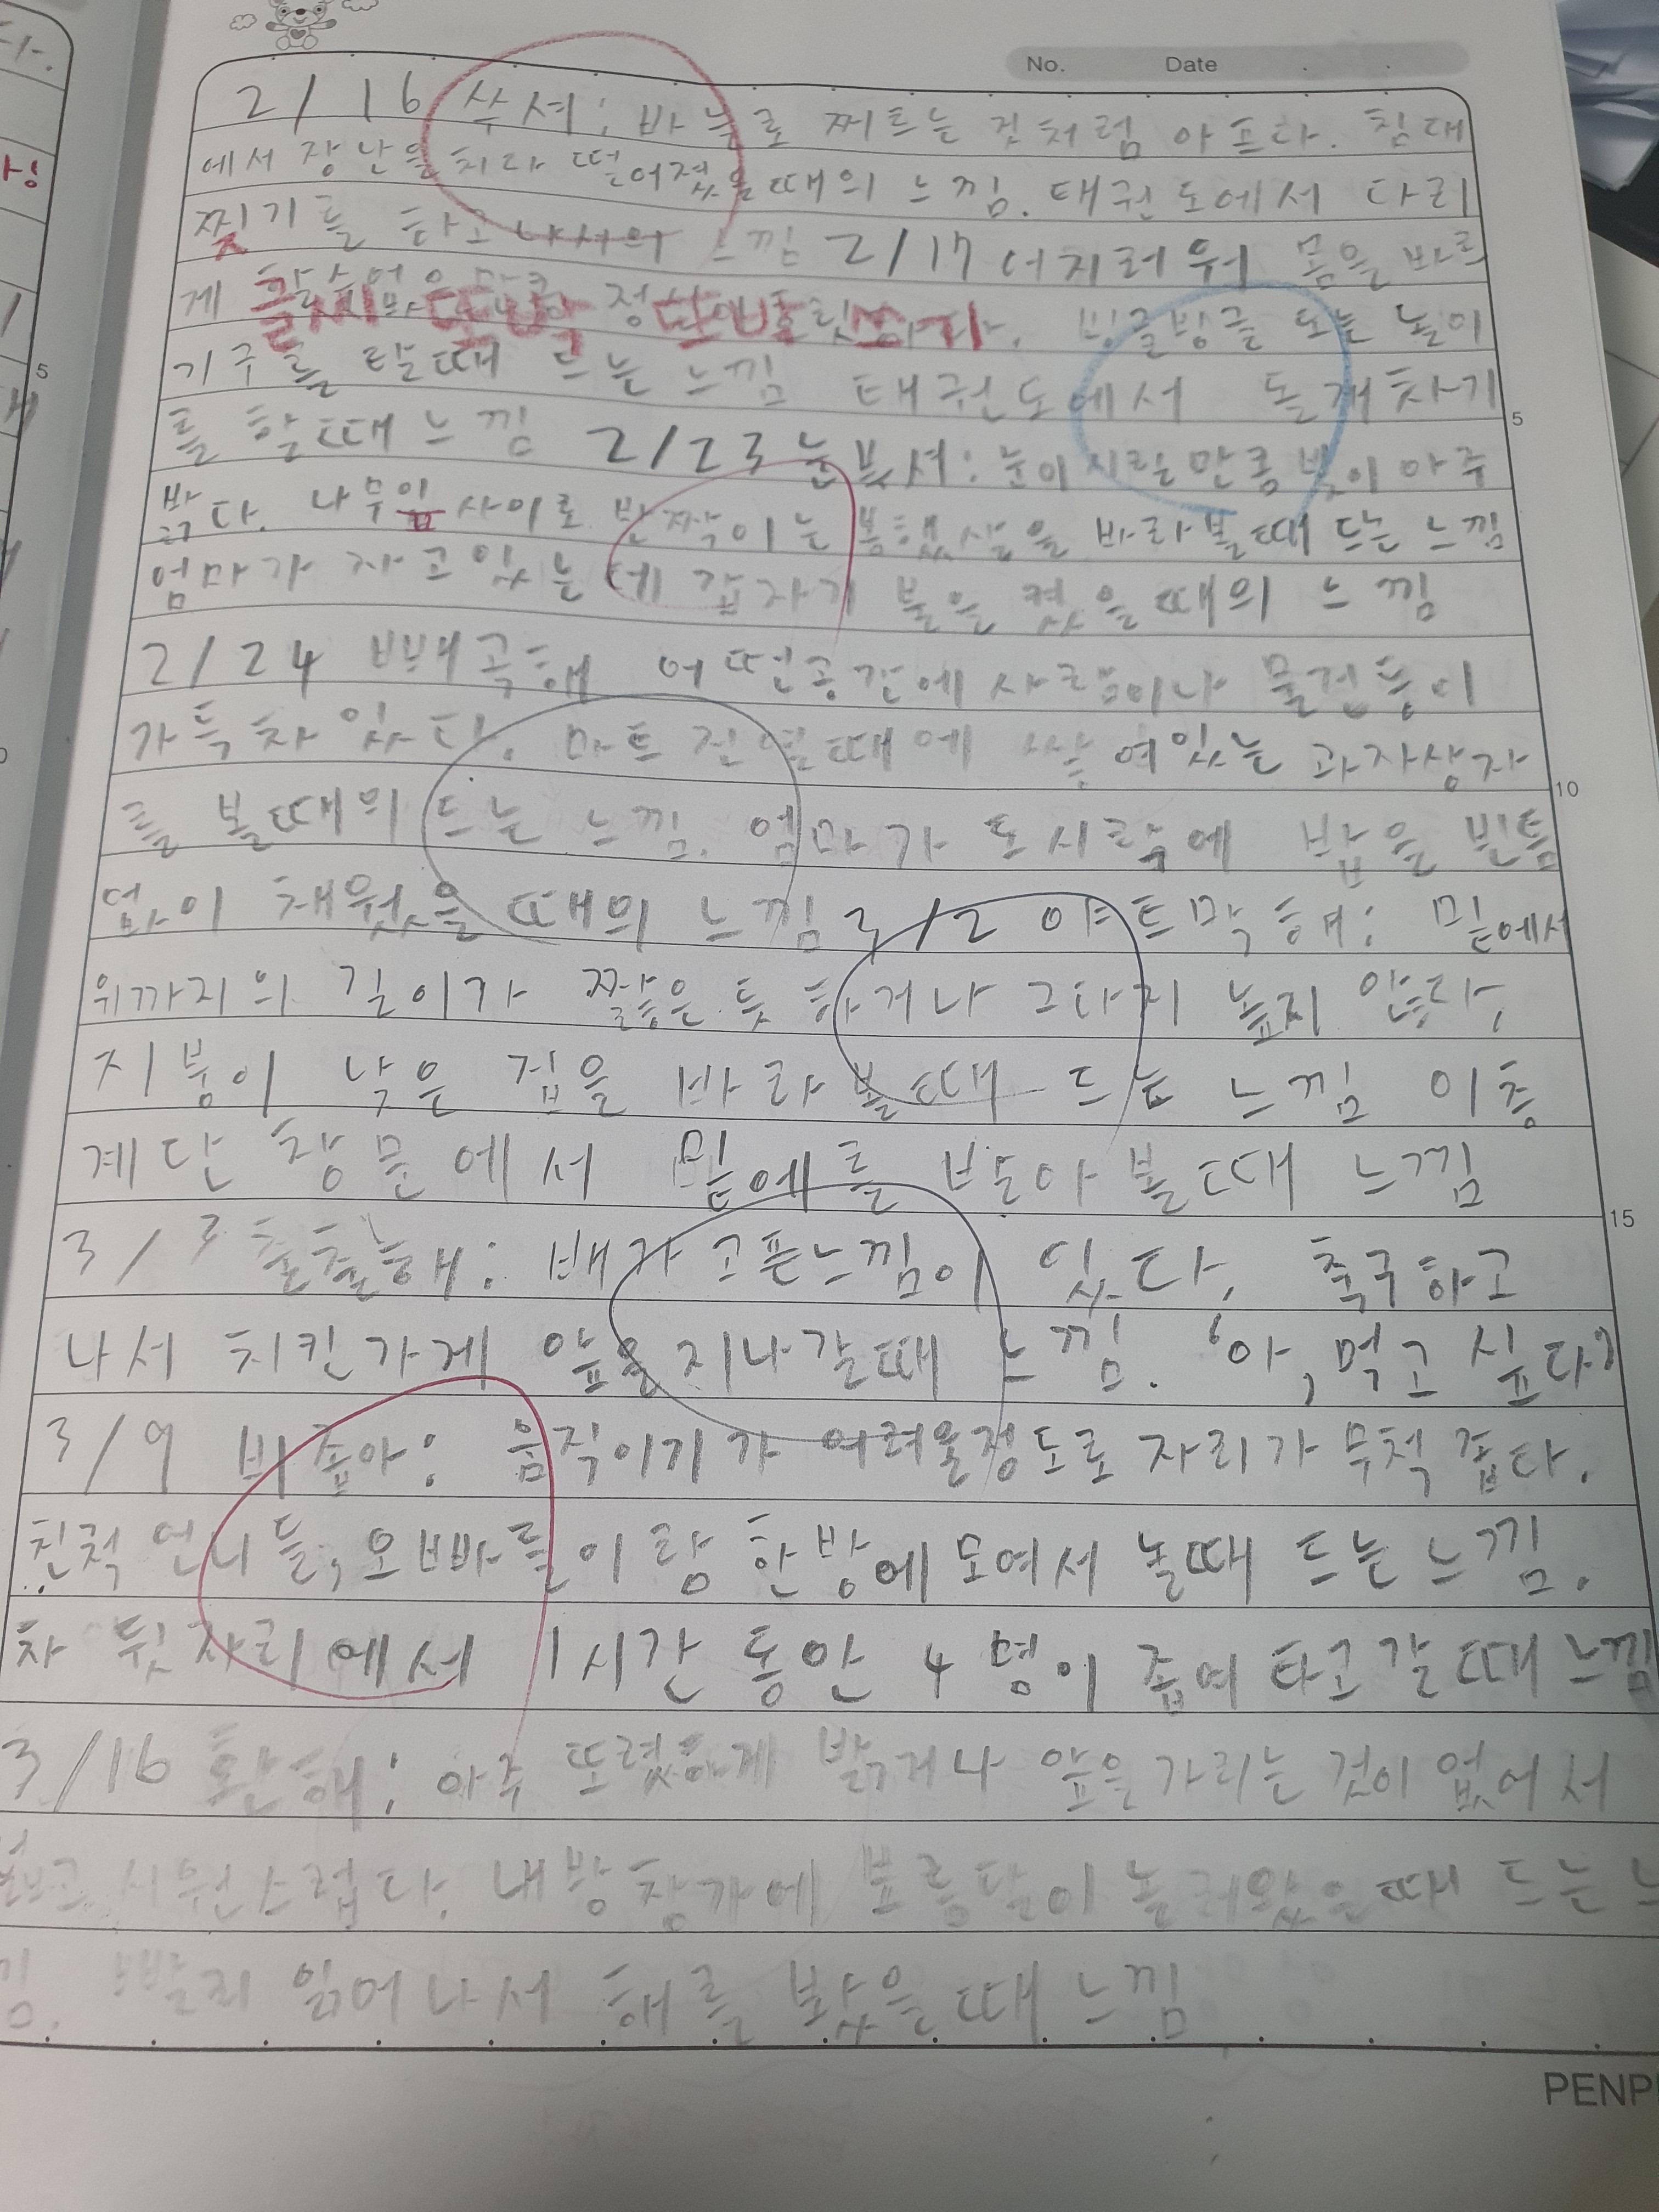 No. Date
2/16 쑤셔: 바늘로 찌르는 것처럼 아프다. 침대
에서 장난을 치다 떨어졌을때의 느낌. 태권도에서 다리
찢기를 하고 나서의 느낌 2/17 어지러워 몸을 바르
게 정
글씨 또박 또박 쓰기
빙글빙글 도는 놀이
기구를 탈때 드는 느낌 태권도에서 돌개차기
를 할때 느낌 2/23 눈부셔: 눈이 시릴만큼 빛이 아주
밝다. 나무잎 사이로 반짝이는 봄햇살을 바라볼때 드는 느낌
엄마가 자고있는데 갑자기 불을 켰을때의 느낌
2/24 빽곡해 어떤공간에 사람이나 물건등이
가득차있다. 마트 진열때에 쌓여있는 과자상자
를 볼때의 드는 느낌. 엄마가 도시락에 밥을 빈틈
없이 채웠을 때의 느낌 3/2 야트막해: 밑에서
위까지의 길이가 짧은 듯 하거나 그다지 높지 않다.
지붕이 낮은 집을 바라볼때 드는 느낌 이층
계단 창문에서 밑에를 볼때 느낌
3/3 출출해: 배가 고픈느낌이 있다. 축구하고
나서 치킨가게 앞을 지나갈때 느낌. '아, 먹고 싶다'
3/9 비좁아: 움직이기가 어려울정도로 자리가 무척 좁다.
친척 언니들, 오빠들이랑 한방에 모여서 놀때 드는 느낌.
차 뒷자리에서 1시간 동안 4명이 좁여 타고갈때 느낌
3/16 환해: 아주 또렸하게 밝거나 앞을 가리는 것이 없어서
시원스럽다. 내방 창가에 보름달이 놀러왔을때 드는 느
낌. 빨리 일어나서 해를 봤을때 느낌
5
10
15